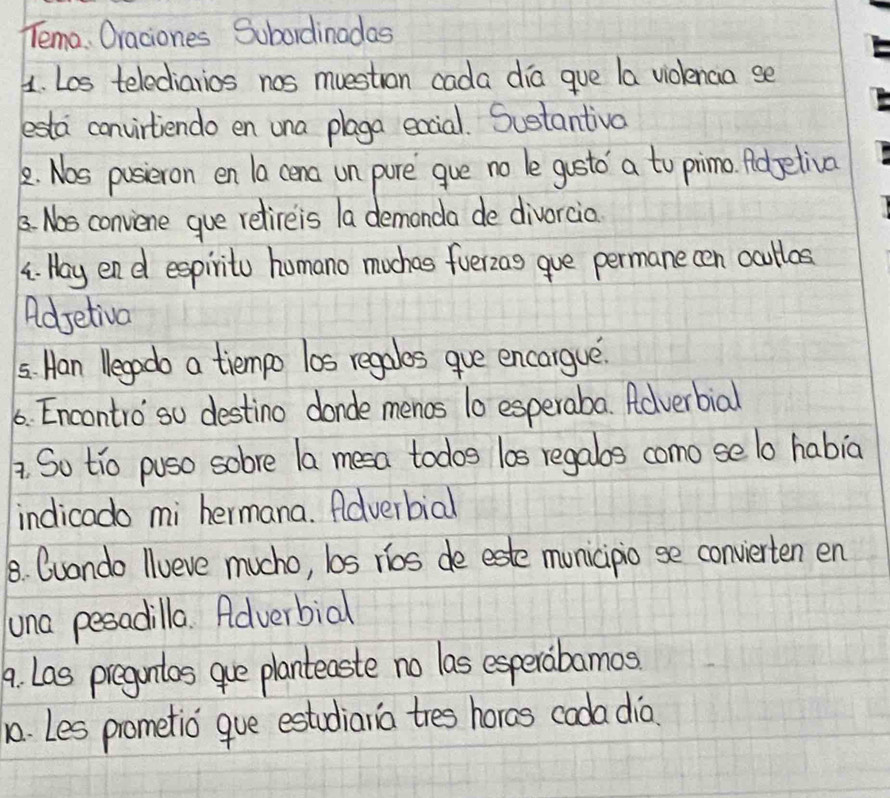 Tema. Oraciones Subordinadas
1. Los telediarios nos muestran cada día que la violencia se
está convirtiendo en una plaga social. Sustantiva
2. Nos pusieron en la cena un puré que no le gustó a tu primo. Adjetiva
3. Nos conviene que retiréis la demanda de divorcia.
4. Hay en el espíritu humano muchas fuerzas que permanecen ocultas
Adjetiva
5. Han llegado a tiempo los regalos que encargué.
6. Encontró su destino donde menos lo esperaba. Adverbial
7. Su tío puso sobre la mesa todos los regalos como se lo había
indicado mi hermana. Adverbial
8. Cuando llueve mucho, los ríos de este municipio se convierten en
una pesadilla. Adverbial
9. Las preguntas que planteaste no las esperábamos.
10. Les prometió que estudiaría tres horas cada día.